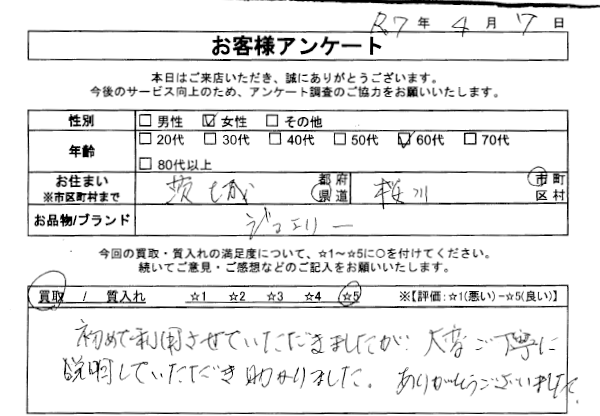 R7年 4月 7日
お客様アンケート
本日はご来店いただき、誠にありがとうございます。
今後のサービス向上のため、アンケート調査のご協力をお願いいたします。
性別 □男性 ☑女性 □その他
年齢 □20代 □30代 □40代 □50代 ☑60代 □70代
□80代以上
お住まい ※市区町村まで 茨城 都府県道 桜川 市町区村
お品物/ブランド ジュエリー
今回の買取・質入れの満足度について、☆1～☆5に○を付けてください。
続いてご意見・ご感想などのご記入をお願いいたします。
買取 / 質入れ ☆1 ☆2 ☆3 ☆4 ☆5 ※【評価:☆1(悪い)−☆5(良い)】
初めて利用させていただきましたが、大変ご丁寧に
説明していただき助かりました。ありがとうございました。